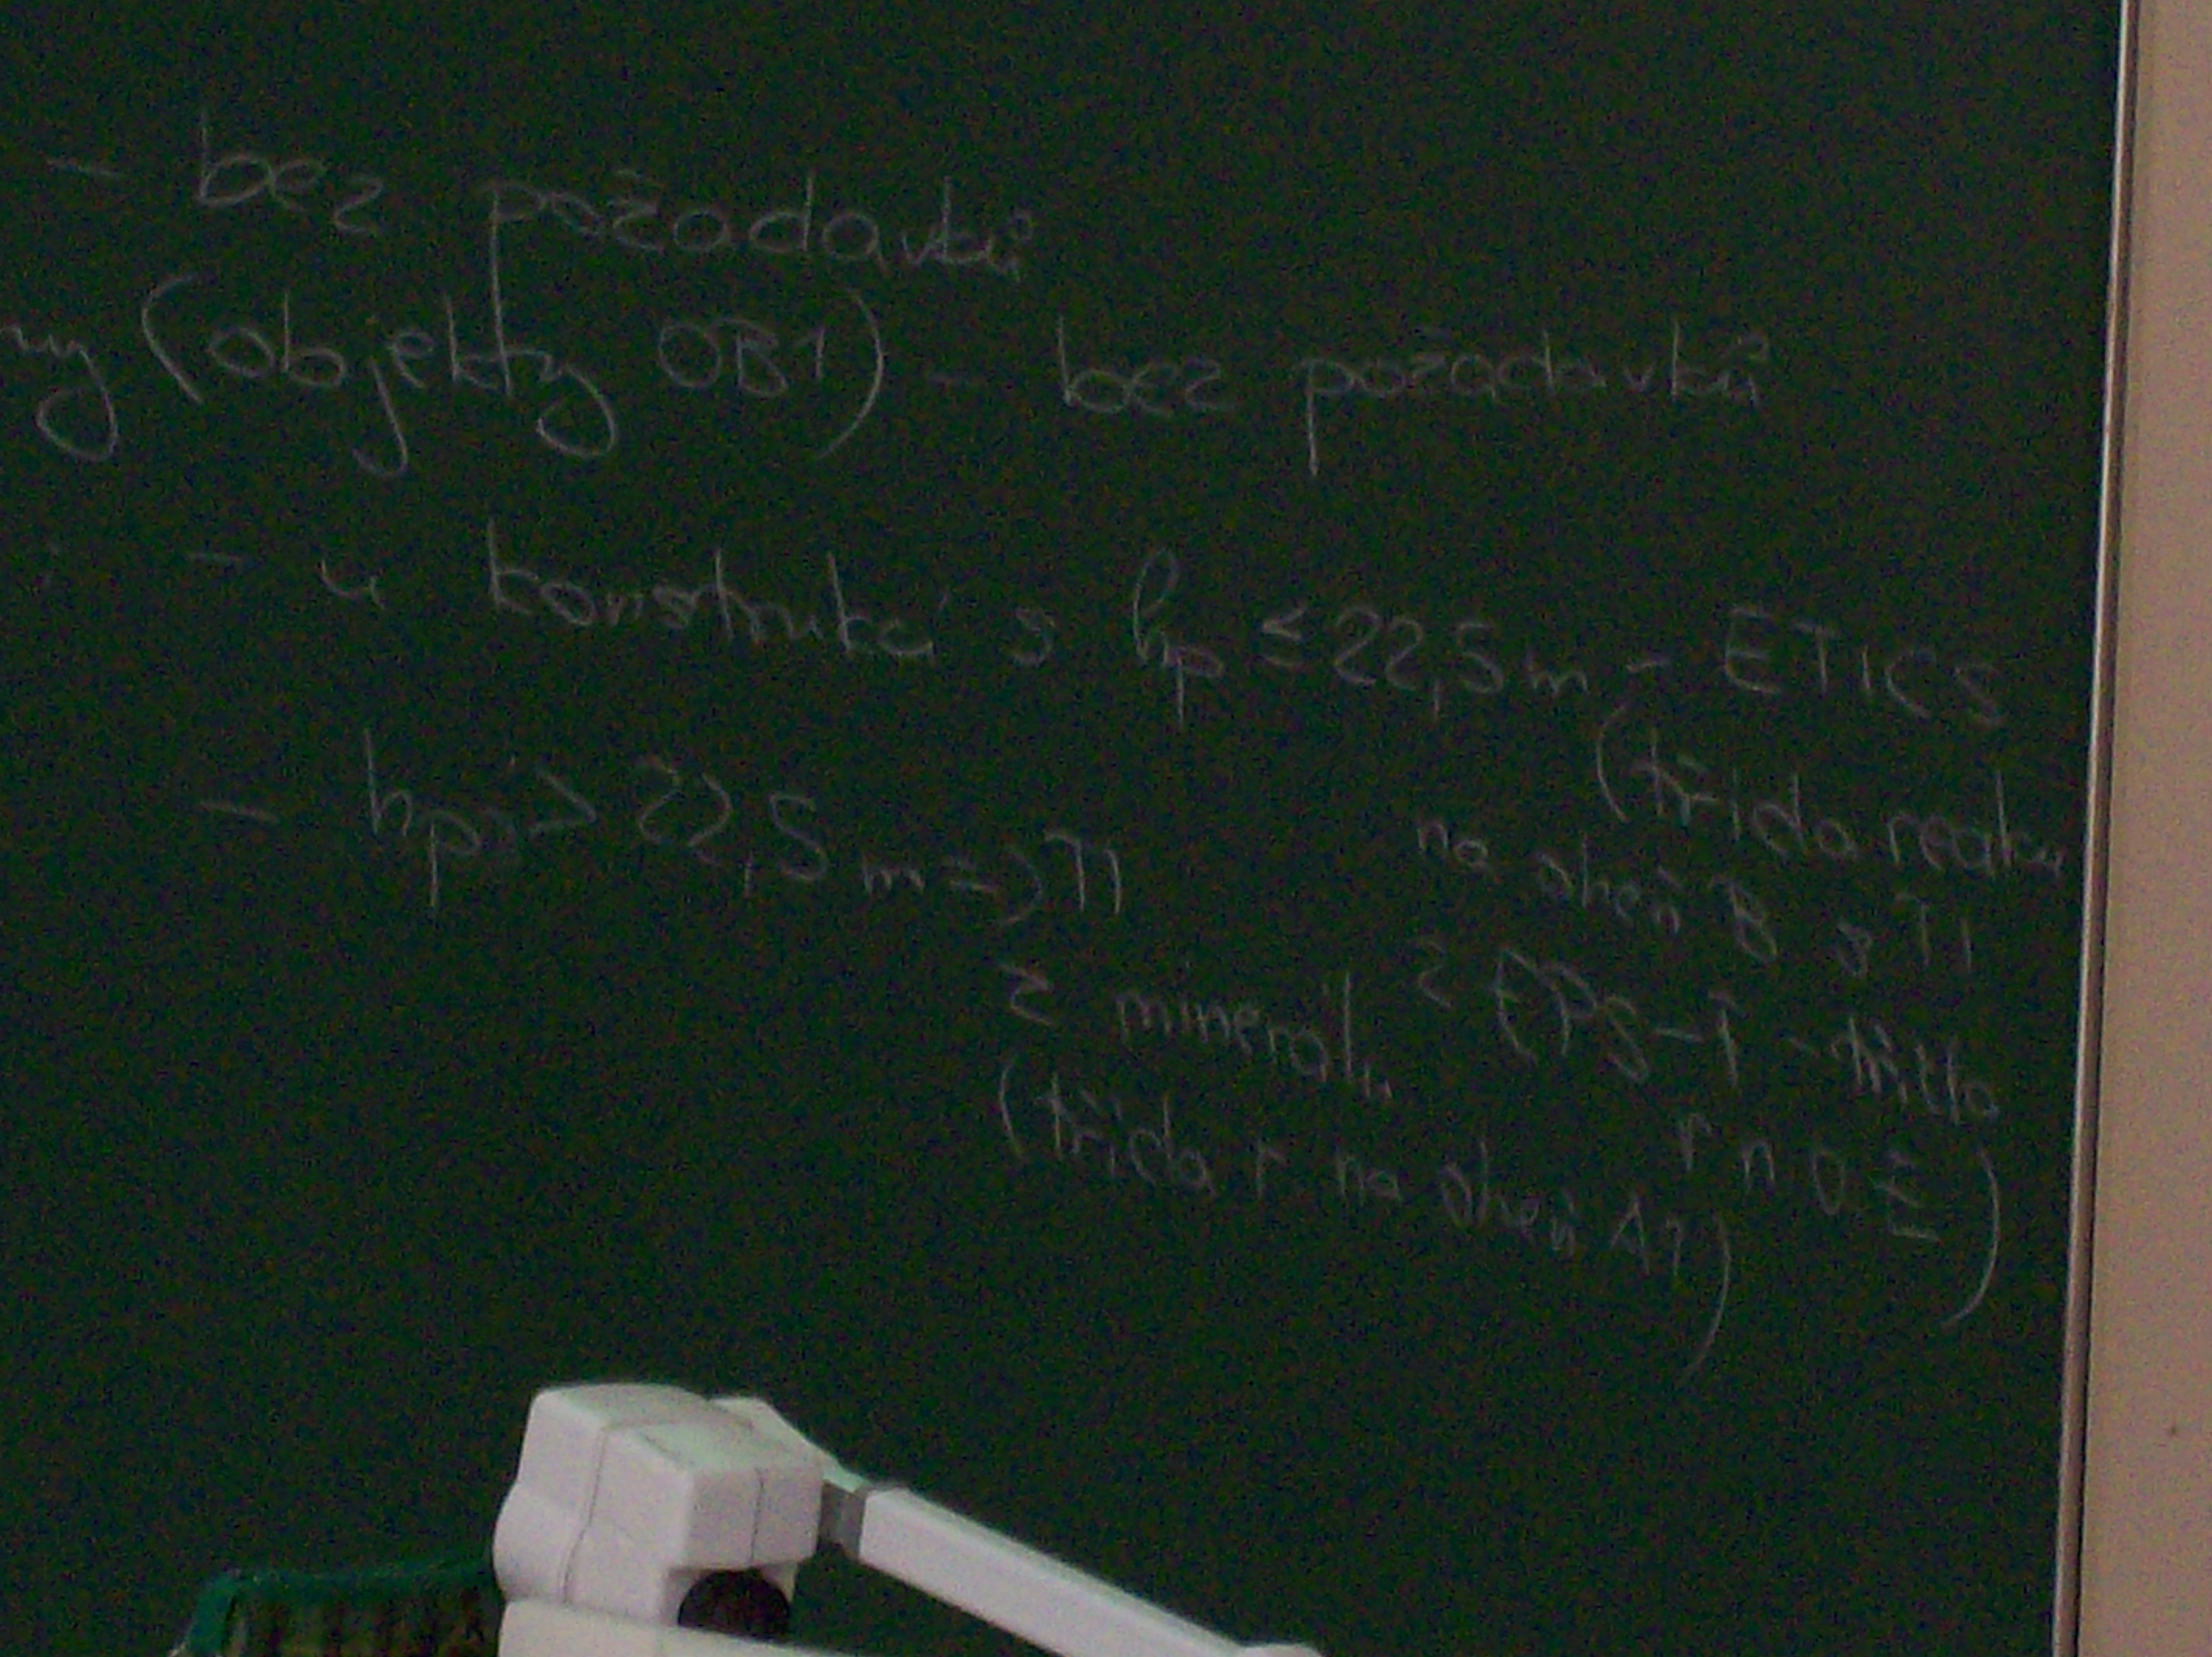 - bez požadavků
ny (objekty OB1) - bez požadavků
- u konstrukcí s hp ≤ 22,5 m - ETICS
(třída reakce
na oheň B s TI
z EPS-F - třída
r n o E)
- hp > 22,5 m => TI
z minerálu
(třída r na oheň A1)